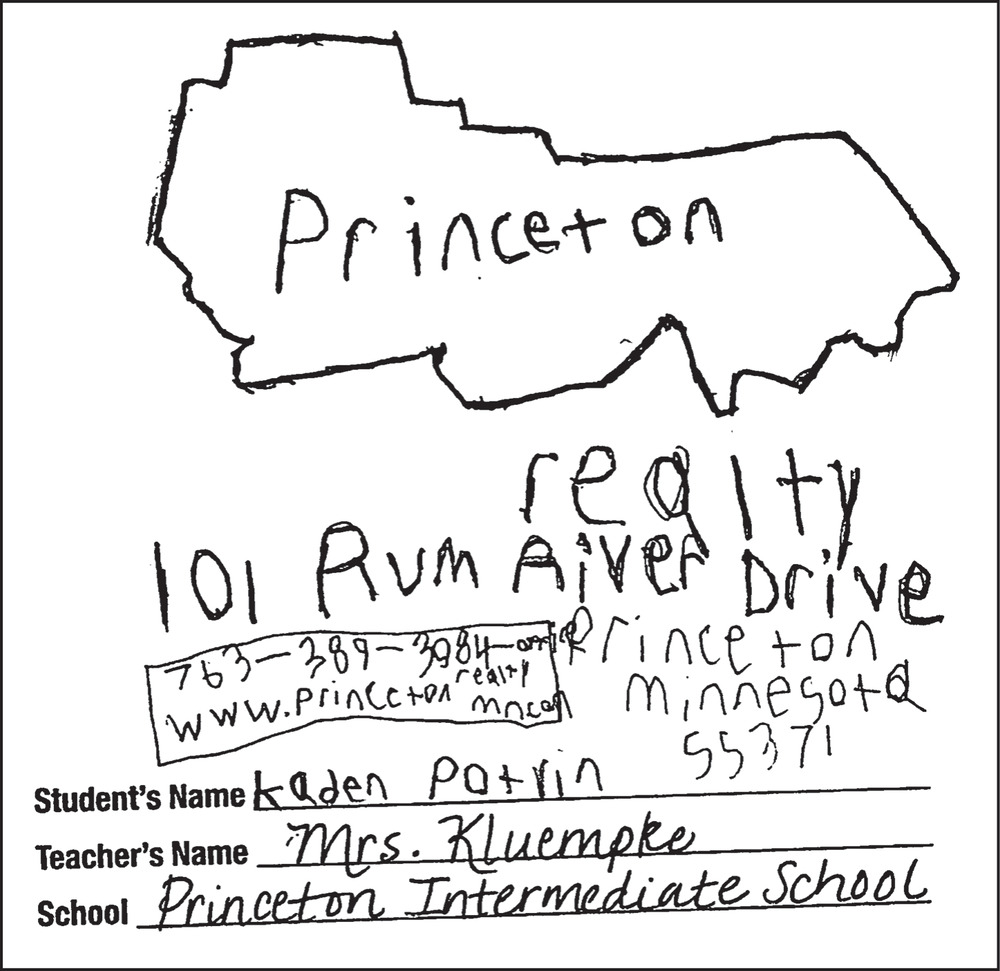 Princeton
realty
101 Rum River Drive
763-389-3084-office
www.princeton realty mn.com
Princeton
minnesota
55371
Student's Name Kaden Patrin
Teacher's Name Mrs. Kluempke
School Princeton Intermediate School